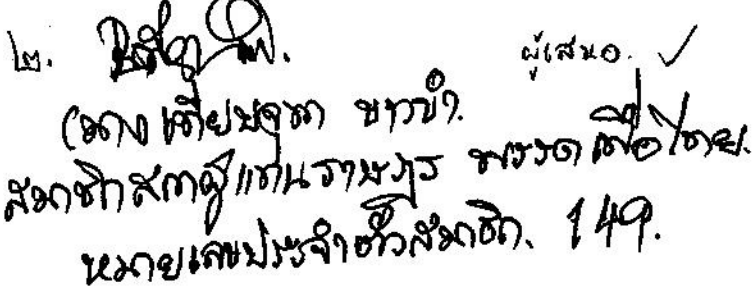 ๒. ผู้เสนอ. ✓
(นาง เทียบจุฑา ขาวขำ.
สมาชิกสภาผู้แทนราษฎร พรรคเพื่อไทย.
หมายเลขประจำตัวสมาชิก. 149.